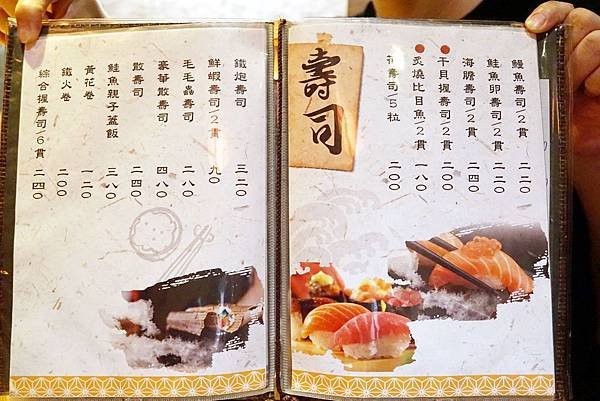 壽司
鰻魚壽司/2貫 二〇〇
鮭魚卵壽司/2貫 二〇〇
海膽壽司/2貫 二四〇
干貝握壽司/2貫 二〇〇
炙燒比目魚/2貫 一八〇
壽司/5粒 二〇〇
鐵炮壽司 三二〇
鮮蝦壽司/2貫 九〇
毛毛蟲壽司 二八〇
豪華散壽司 四八〇
散壽司 二四〇
鮭魚親子蓋飯 三八〇
黃花卷 一二〇
鐵火卷 二〇〇
綜合握壽司/6貫 二四〇